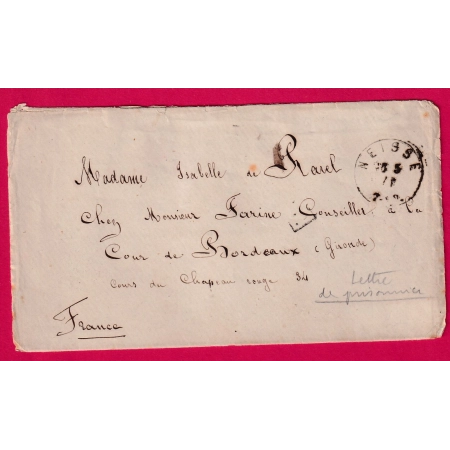 Madame Isabelle de Ravel
NEISSE
Chez Monsieur Farine Conseiller à la
Cour de Bordeaux (Gironde)
Cours du Chapeau rouge 34
Lettre
de prisonnier
France